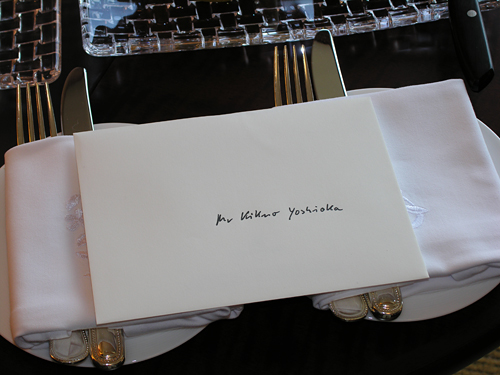 Mr Kikuo Yoshioka